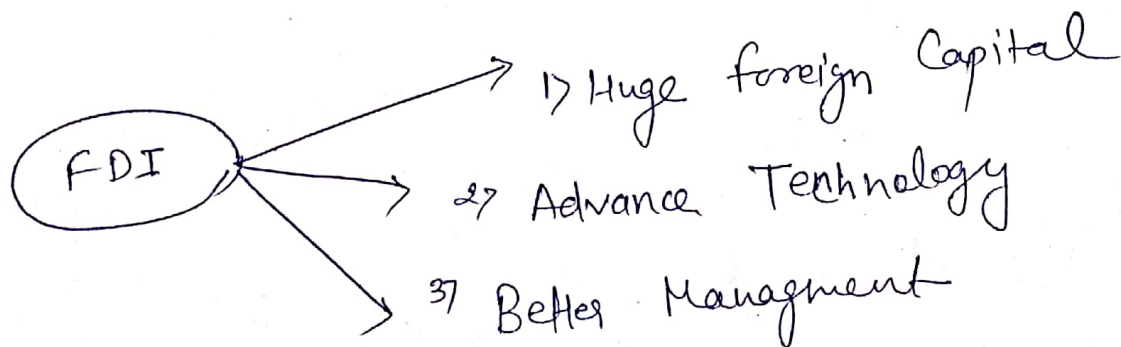 FDI
1) Huge foreign Capital
2) Advance Technology
3) Better Managment